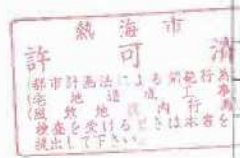 熱海市
許可済
都市計画法による開発行為
宅地造成工事
風致地区内行為
検査を受けるときは本書を
提出して下さい